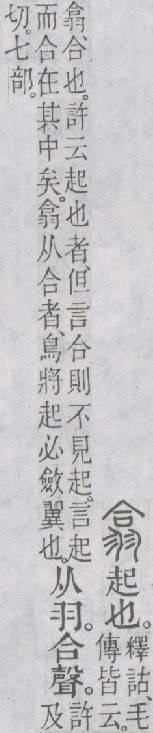 翕起也。
釋詁、毛
傳皆云。
翕、合也。許云起也者、但言合則不見起。言起
而合在其中矣。翕从合者、鳥將起必斂翼也。
从羽。合聲。
許
及
切。七部。